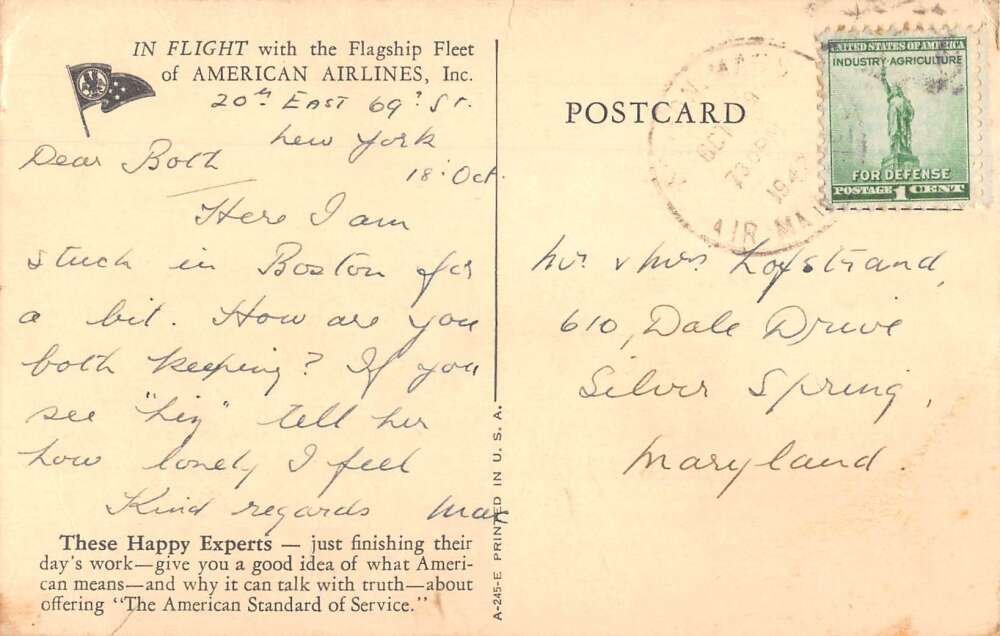 IN FLIGHT with the Flagship Fleet
of AMERICAN AIRLINES, Inc.
20th EAST 69? St.
New York
18: Oct.
Dear Both
Here I am
stuck in Boston for
a bit. How are you
both keeping? If you
see "Liz" tell her
how lonely I feel
Kind regards Max
These Happy Experts — just finishing their
day's work—give you a good idea of what Ameri-
can means—and why it can talk with truth—about
offering "The American Standard of Service."
A-245-E PRINTED IN U. S. A.
POSTCARD
OCT
7 30 PM
194
AIR MAIL
UNITED STATES OF AMERICA
INDUSTRY·AGRICULTURE
FOR DEFENSE
POSTAGE 1 CENT
Mr. & Mrs. Lofstrand,
610, Dale Drive
Silver Spring,
Maryland.